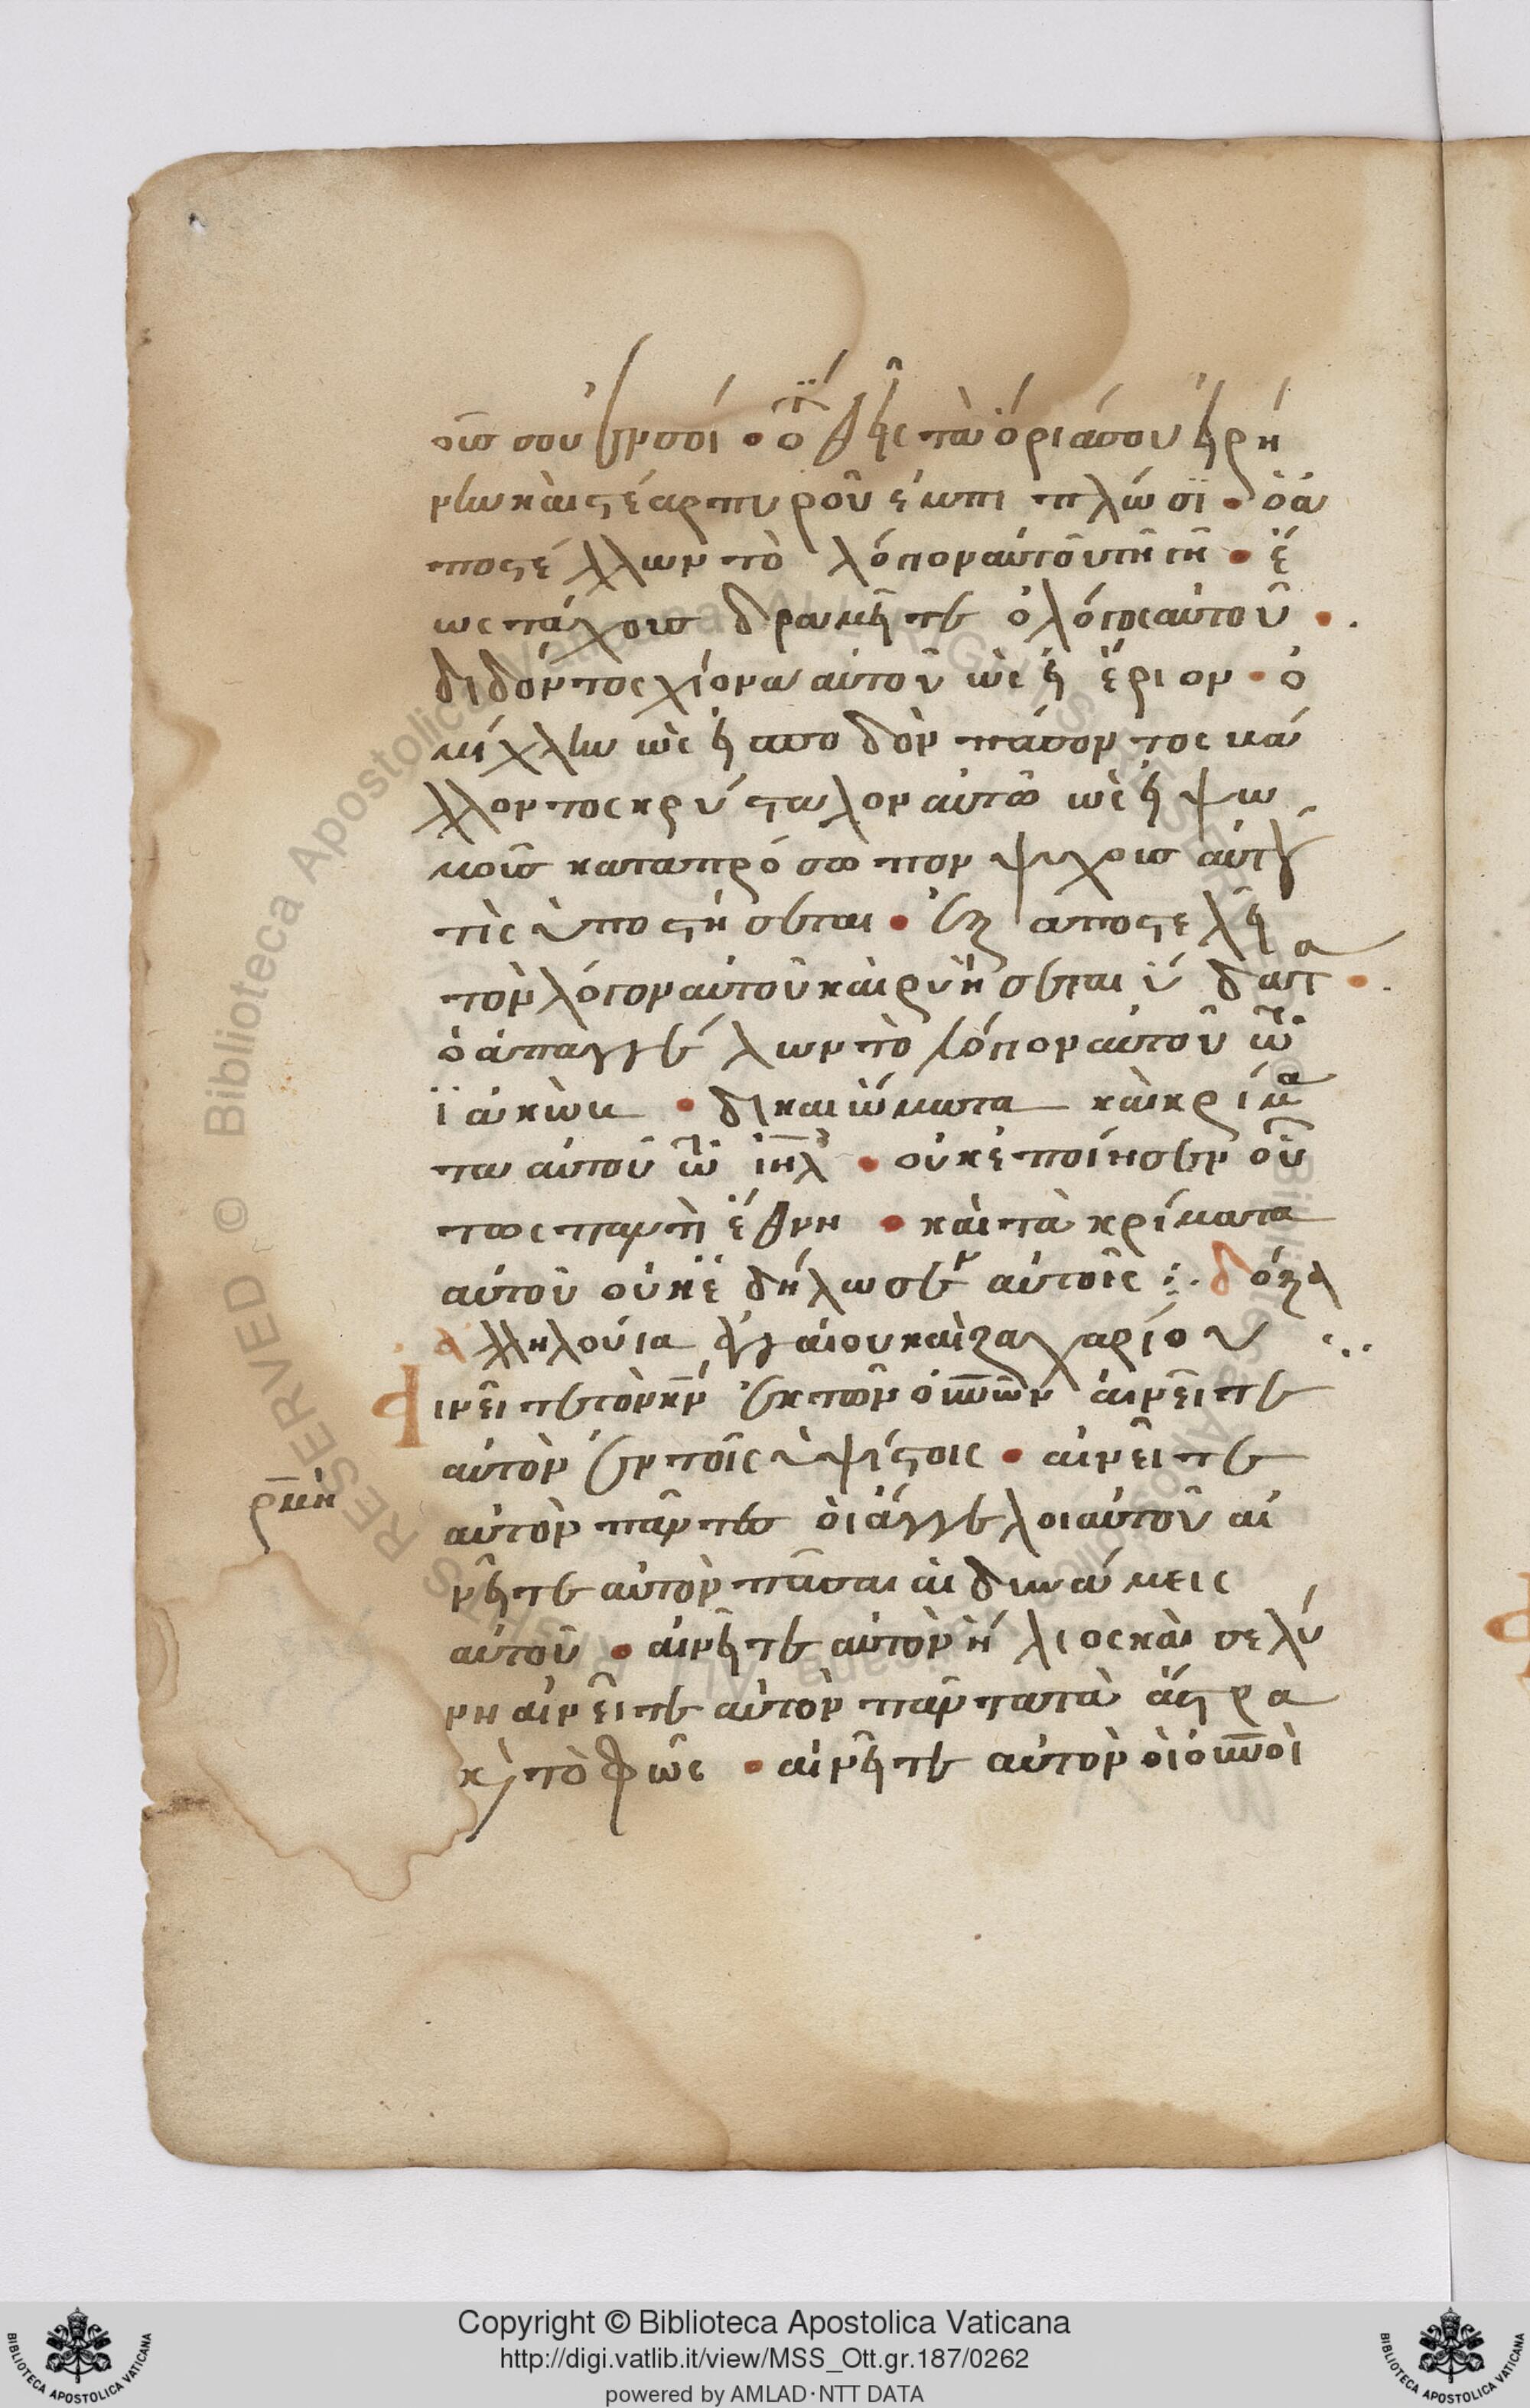 οὺσ σου ἐν σοί · ὁ τιθεὶς τὰ ὅριά σου εἰρή
νην καὶ στέαρ πυροῦ ἐμπιπλῶσϊ · ὁ ἀ
ποστέλλων τὸ λόγον αὐτοῦ τῆ γῆ · ἕ
ως τάχους δραμεῖτε ὁ λόγος αὐτοῦ ·.
διδόντος χίονα αὐτοῦ ὡσεὶ ἔριον · ὁ
μίχλην ὡσεὶ σποδὸν πάσοντος κά
λλοντος κρύσταλον αὐτοῦ ὡσεὶ ψω
μοῦσ κατα πρόσωπον ψύχους αὐτοῦ
τὶς ὑποστήσεται · ἐξαποστελεῖ
τὸν λόγον αὐτοῦ καὶ ρυήσεται ὕδατα ·.
ὁ ἀπαγγέλων τὸ λόγον αὐτοῦ τῶ
ϊακὼβ · δικαιώματα καὶ κρίμα
τα αὐτοῦ τῶ ιηλ · οὐκ ἐποίησεν οὕ
τως παντὶ ἔθνη · καὶ τὰ κρίματα
αὐτοῦ οὐκ ἐδήλωσεν αὐτοῖς :· δόξα
αλληλούια ἀγγαίου καὶ ζαχαρίου ...
Αἰνεῖτε τὸν κν ἐκ τῶν οὐνῶν αἰνεῖτε
αὐτὸν ἐν τοῖς ὑψίστοις · αἰνεῖτε
ρμη
αὐτὸν πάντεσ ὁι ἄγγελοι αὐτοῦ αἰ
νεῖτε αὐτὸν πᾶσαι αἱ δυνάμεις
αὐτοῦ · αἰνεῖτε αὐτὸν ἥλιος καὶ σελύ
νη αἰνεῖτε αὐτὸν πάντα τὰ ἄστρα
κὶ τὸ φῶς · αἰνεῖτε αὐτὸν ὁι οὐνοὶ
Copyright © Biblioteca Apostolica Vaticana
http://digi.vatlib.it/view/MSS_Ott.gr.187/0262
powered by AMLAD·NTT DATA